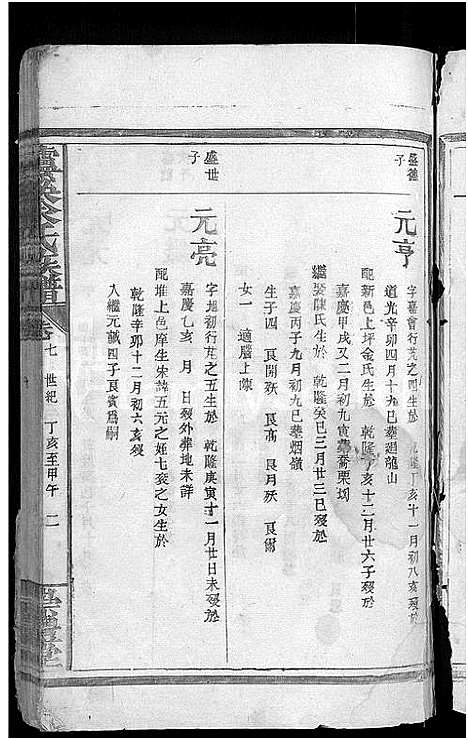 盛德子
元亨
字嘉會行芫之四生於 乾隆丁亥十一月初八亥歿於
道光辛卯四月十九巳葬廻龍山
配新邑上坪金氏生於 乾隆丁亥十二月廿六子歿於
嘉慶甲戌又二月初九寅葬喬栗垇
繼娶陳氏生於 乾隆癸巳三月廿三巳歿於
嘉慶丙子九月初九巳葬烟嶺
生子四 艮開殀 艮高 艮月殀 艮爾
女一 適腦上
盛世子
元亮
字旭初行芫之五生於 乾隆庚寅十一月廿日未歿於
嘉慶乙亥 月 日歿外葬地未詳
配堆上色摩生宋諱五元之姪七妾之女生於
乾隆辛卯十二月初六亥歿
入繼元誠四子艮賓爲嗣
氏族譜
卷七 世紀 丁亥至甲午 二